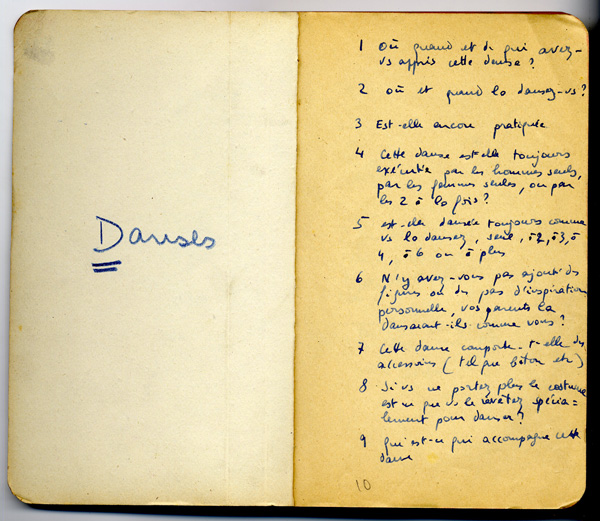 Danses
1 Où quand et de qui avez-
vs appris cette danse ?
2 où et quand la dansez-vs ?
3 Est-elle encore pratiquée
4 Cette danse est-elle toujours
exécutée par les hommes seuls,
par les femmes seules, ou par
les 2 à la fois ?
5 est-elle dansée toujours comme
vs la dansez, seul, à 2, à 3, à
4, à 6 ou à plus
6 N'y avez-vous pas ajouté des
figures ou des pas d'inspiration
personnelle, vos parents la
dansaient-ils comme vous ?
7 Cette danse comporte-t-elle des
accessoires (tel que bâton etc)
8 Si vs ne portez plus le costume
est ce que vs le revêtez spécia=
lement pour danser ?
9 Qui est-ce qui accompagne cette
danse
10